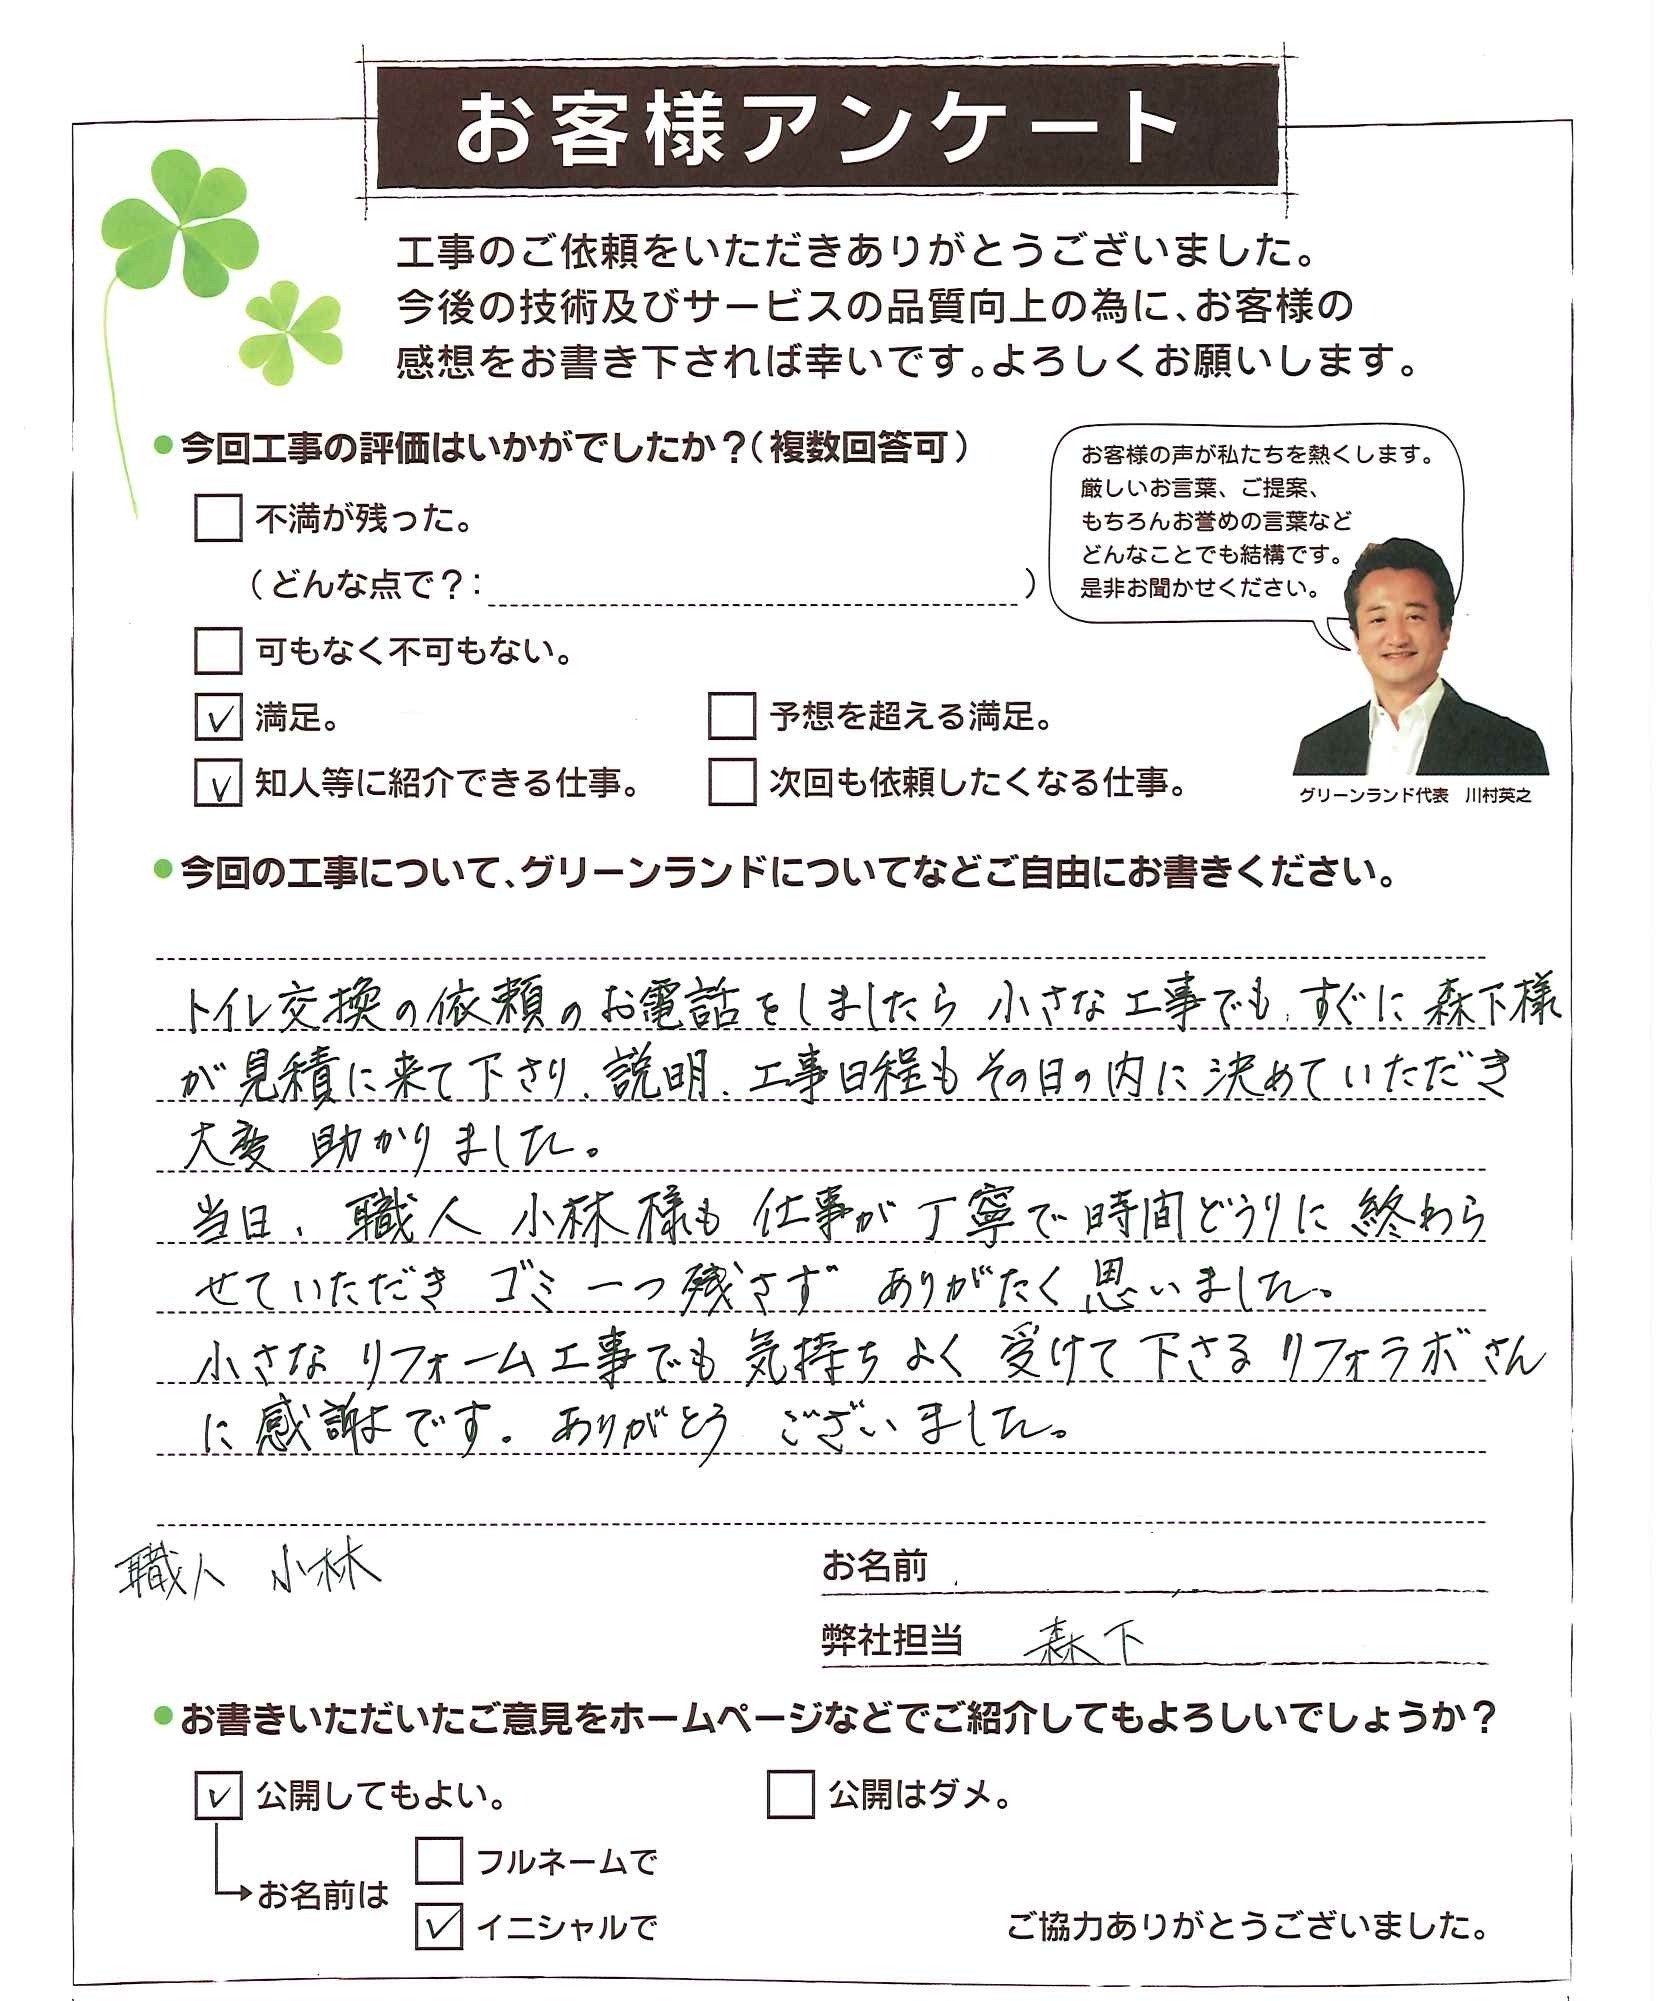 お客様アンケート
工事のご依頼をいただきありがとうございました。
今後の技術及びサービスの品質向上の為に、お客様の
感想をお書き下されば幸いです。よろしくお願いします。
●今回工事の評価はいかがでしたか？（複数回答可）
お客様の声が私たちを熱くします。
厳しいお言葉、ご提案、
もちろんお誉めの言葉など
どんなことでも結構です。
是非お聞かせください。
グリーンランド代表 川村英之
□ 不満が残った。
（どんな点で？： ）
□ 可もなく不可もない。
☑ 満足。 □ 予想を超える満足。
☑ 知人等に紹介できる仕事。 □ 次回も依頼したくなる仕事。
●今回の工事について、グリーンランドについてなどご自由にお書きください。
トイレ交換の依頼のお電話をしましたら 小さな工事でも、すぐに 森下様
が見積に来て下さり、説明、工事日程もその日の内に決めていただき
大変 助かりました。
当日、職人 小林様も 仕事が丁寧で時間どうりに 終わら
せていただき ゴミ一つ残さず ありがたく思いました。
小さな リフォーム工事でも 気持ちよく 受けて下さる リフォラボさん
に感謝です。ありがとう ございました。
職人 小林
お名前
弊社担当 森下
●お書きいただいたご意見をホームページなどでご紹介してもよろしいでしょうか？
☑ 公開してもよい。 □ 公開はダメ。
→お名前は □ フルネームで
☑ イニシャルで
ご協力ありがとうございました。